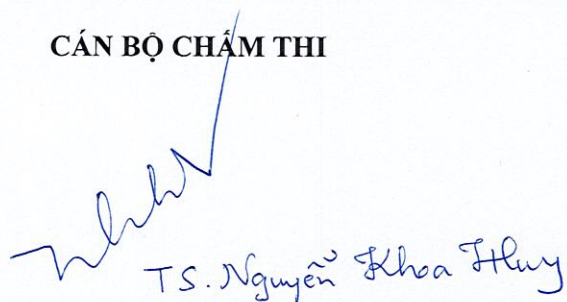 CÁN BỘ CHẤM THI
TS. Nguyễn Khoa Huy